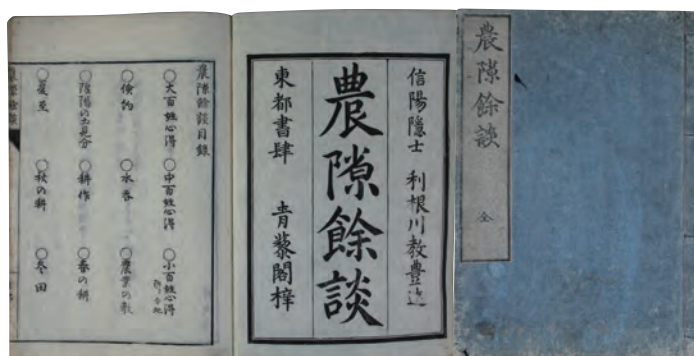 農隙餘談
全
信陽隱士 利根川教豊述
農隙餘談
東都書肆 青藜閣梓
農隙餘談目録
○大百姓心得 ○中百姓心得 ○小百姓心得
○倹約 ○水呑 ○農業の教
○陰陽の土見分 ○耕作 ○春の耕
○夏至 ○秋の耕 ○冬田